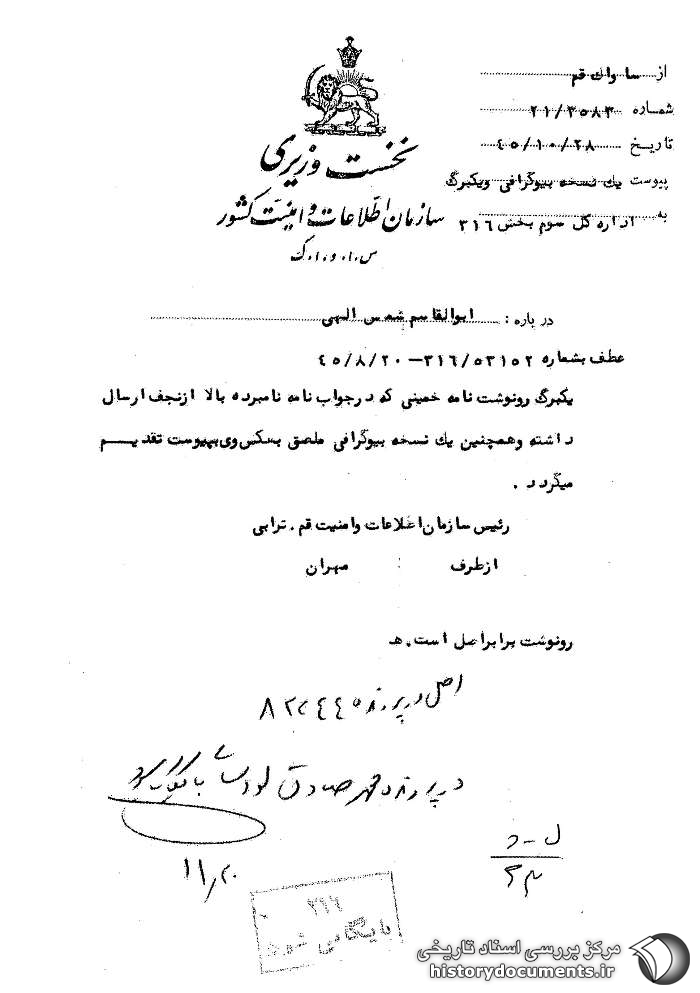 نخست وزیری
سازمان اطلاعات و امنیت کشور
س.ا.و.ا.ک
از ساواک قم
شماره ۲۱/۳۵۸۳
تاریخ ۴۵/۱۰/۲۸
پیوست یک نسخه بیوگرافی ویکبرگ
به اداره کل سوم بخش ۳۱۶
درباره : ابوالقاسم شمس الهی
عطف بشماره ۳۱۶/۵۳۱۵۲-۴۵/۸/۲۰
یکبرگ رونوشت نامه خمینی که درجواب نامه نامبرده بالا ازنجف ارسال
داشته وهمچنین یک نسخه بیوگرافی ملصق بعکس وی بپیوست تقدیم
میگردد .
رئیس سازمان اطلاعات وامنیت قم . ترابی
ازطرف : مهران
رونوشت برابراصل است. هـ
اصل در پرونده
در پرونده محمد صادق بایگانی شود
۱۱/۲۰
ل-د
۲۳
۳۱۶
بایگانی شود
مرکز بررسی اسناد تاریخی
historydocuments.ir